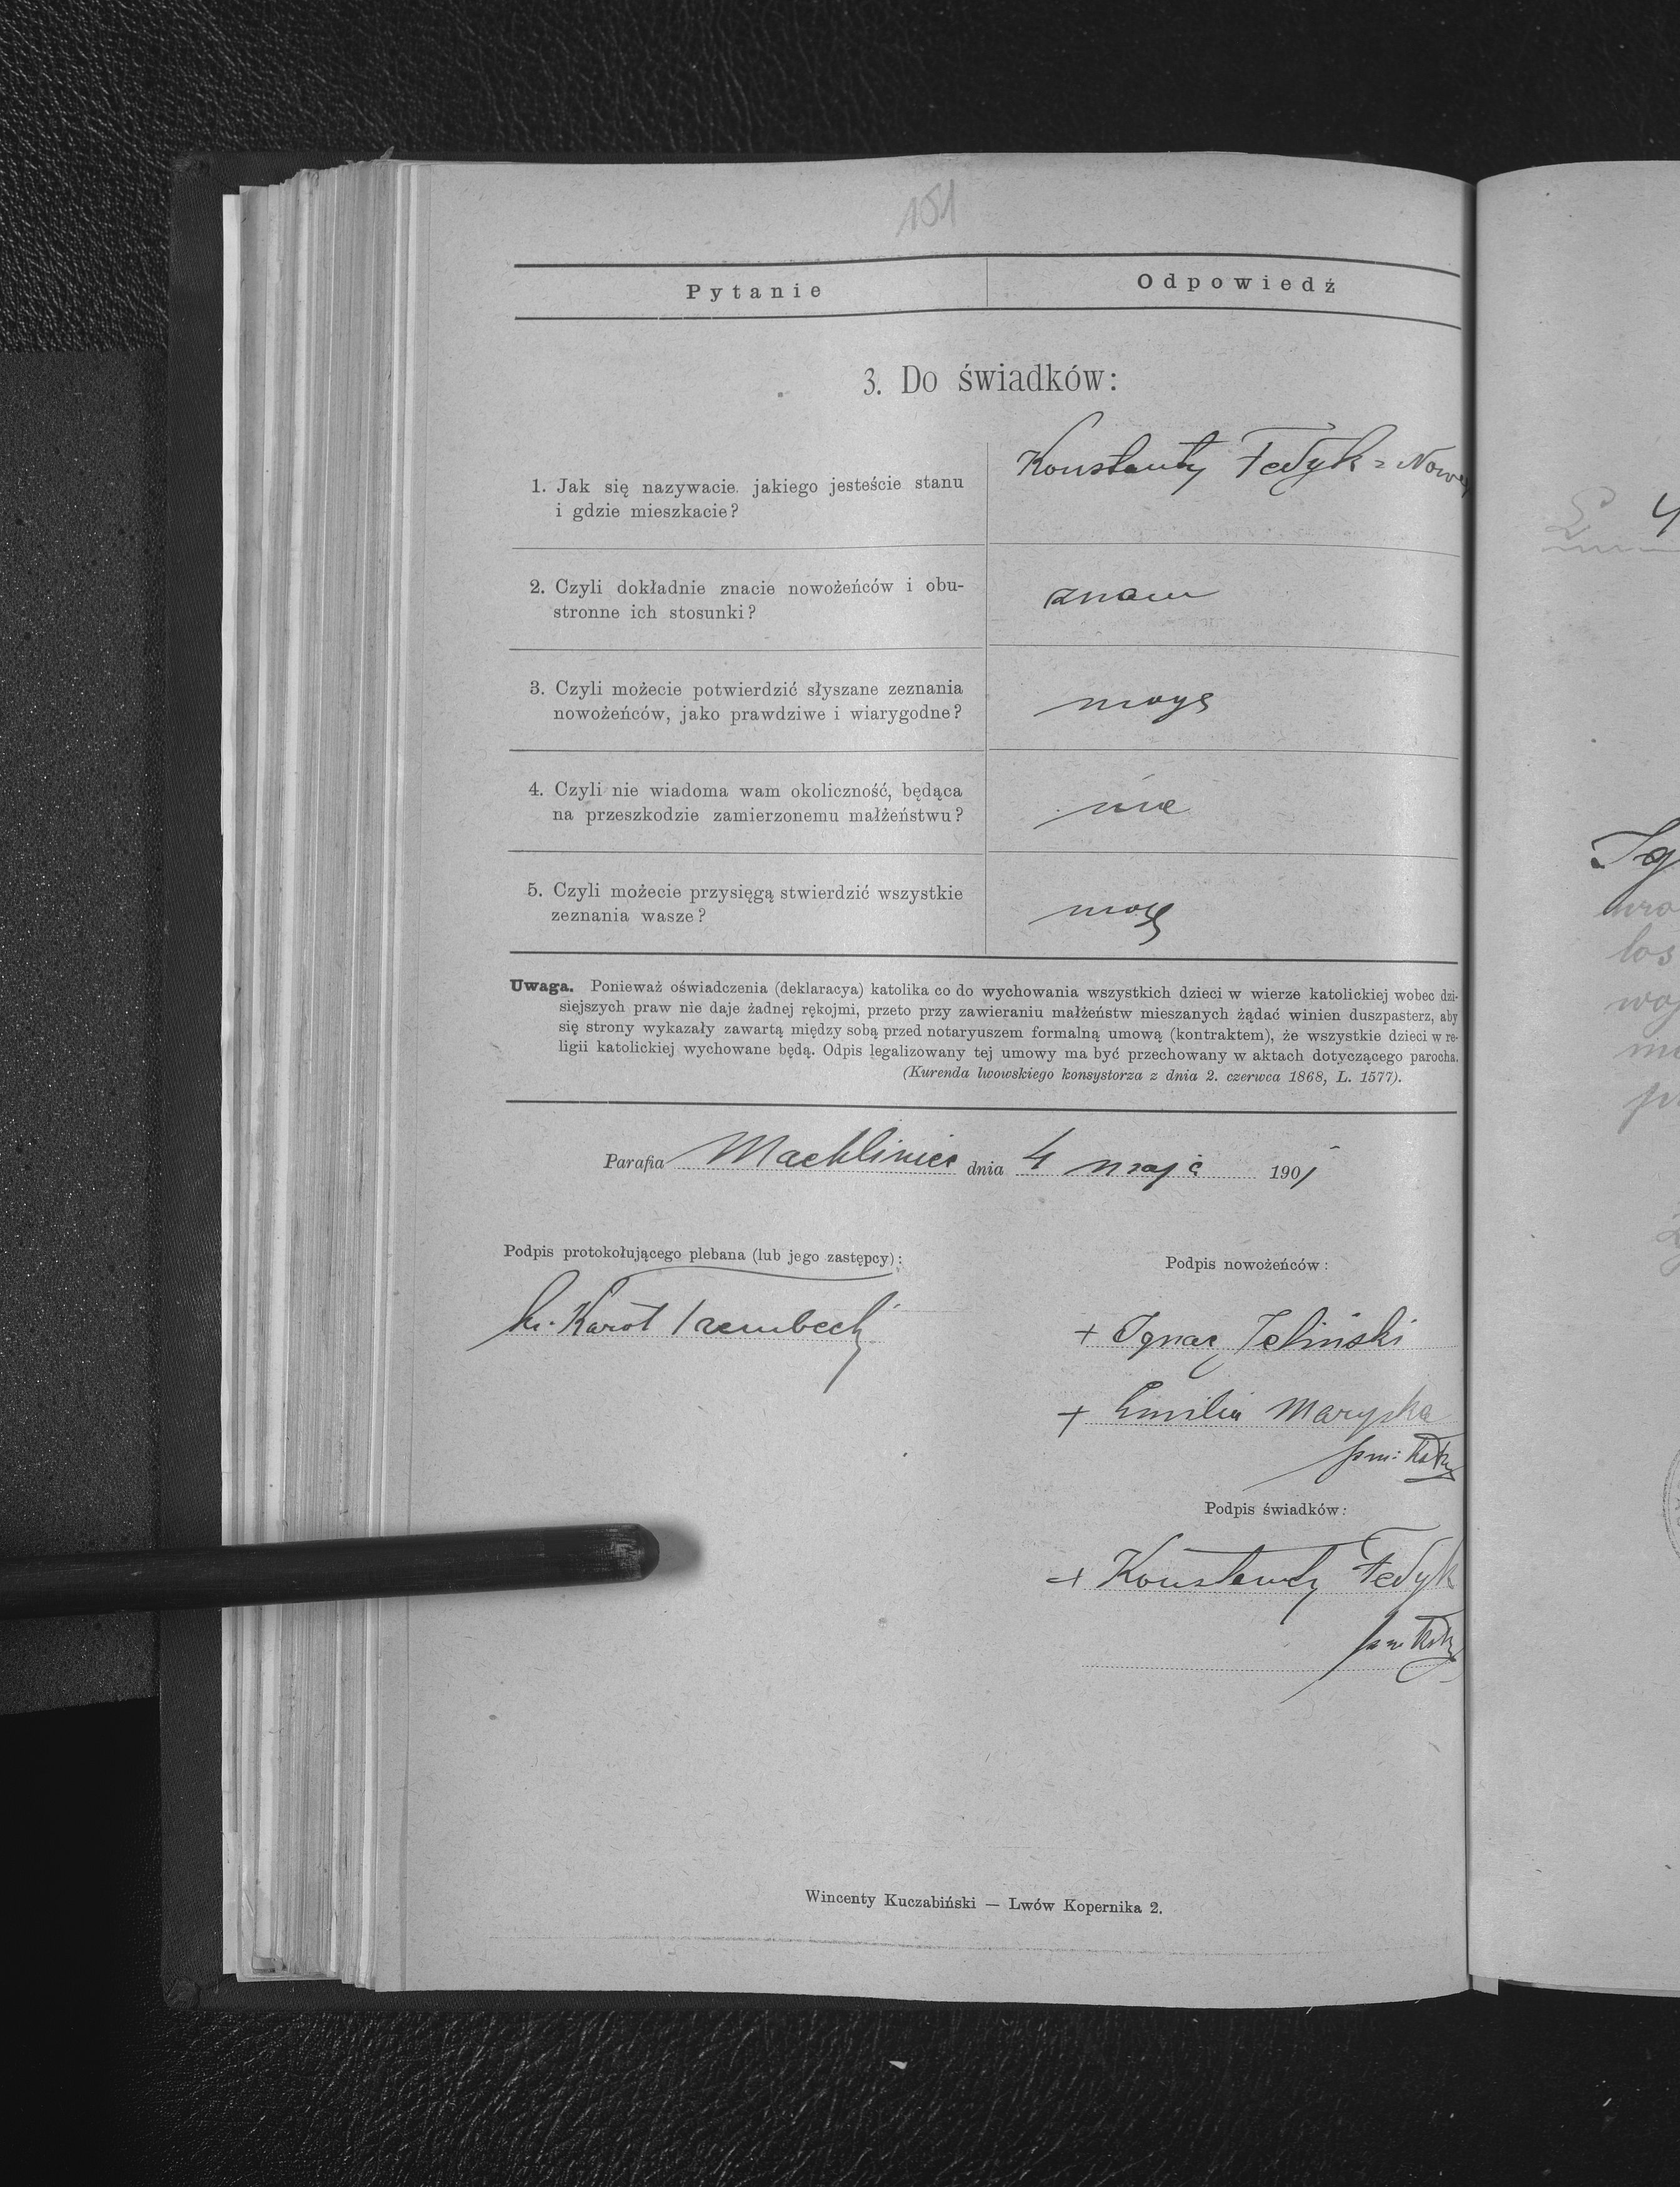 151
Pytanie
Odpowiedź
3. Do świadków:
1. Jak się nazywacie. jakiego jesteście stanu
i gdzie mieszkacie?
Konstanty Fedyk z Nowe
2. Czyli dokładnie znacie nowożeńców i obu-
stronne ich stosunki?
znam
3. Czyli możecie potwierdzić słyszane zeznania
nowożeńców, jako prawdziwe i wiarygodne?
mogę
4. Czyli nie wiadoma wam okoliczność, będąca
na przeszkodzie zamierzonemu małżeństwu?
nie
5. Czyli możecie przysięgą stwierdzić wszystkie
zeznania wasze?
mogę
Uwaga. Ponieważ oświadczenia (deklaracya) katolika co do wychowania wszystkich dzieci w wierze katolickiej wobec dzi-
siejszych praw nie daje żadnej rękojmi, przeto przy zawieraniu małżeństw mieszanych żądać winien duszpasterz, aby
się strony wykazały zawartą między sobą przed notaryuszem formalną umową (kontraktem), że wszystkie dzieci w re-
ligii katolickiej wychowane będą. Odpis legalizowany tej umowy ma być przechowany w aktach dotyczącego parocha.
(Kurenda lwowskiego konsystorza z dnia 2. czerwca 1868, L. 1577).
Parafia Machliniec dnia 4 maja 1901
Podpis protokołującego plebana (lub jego zastępcy):
Podpis nowożeńców:
ks. Karol Trembecki
+ Ignacy Jeliński
+ Emilia Maryska
Podpis świadków:
+ Konstanty Fedyk
Wincenty Kuczabiński — Lwów Kopernika 2.
4
Ig
uro
los